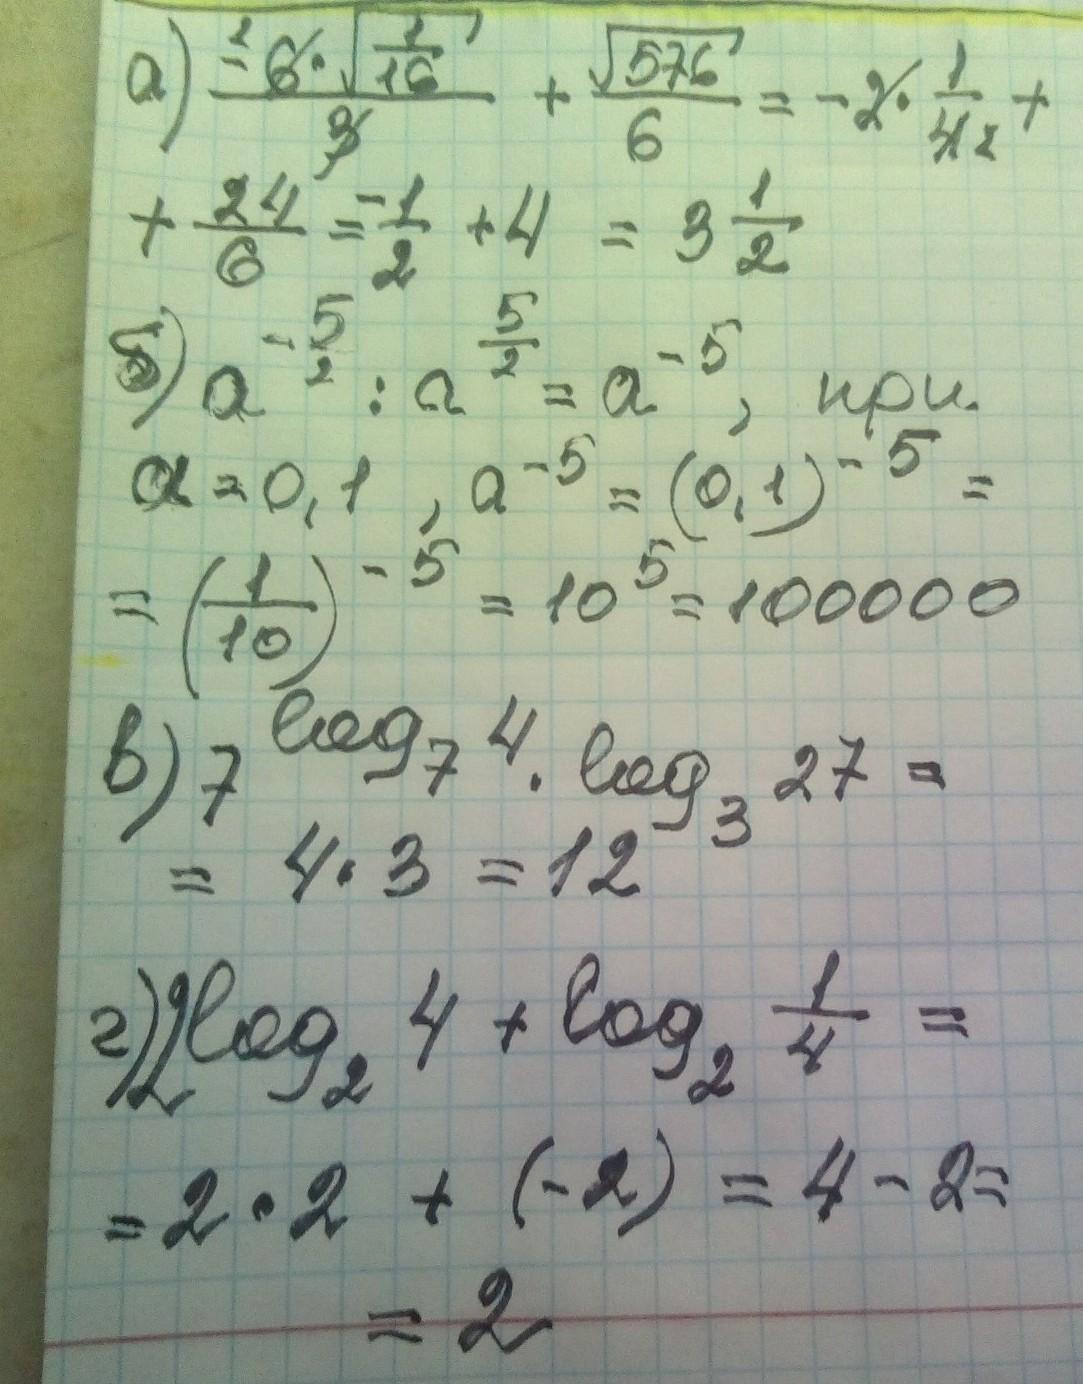 а) (-6·√(1/16))/3 + √576/6 = -2·1/4 2 +
+ 24/6 = -1/2 + 4 = 3 1/2
б) a^(-5/2) : a^(5/2) = a^(-5), при
a = 0,1 , a^(-5) = (0,1)^(-5) =
= (1/10)^(-5) = 10^5 = 100000
в) 7^(log₇ 4) · log₃ 27 =
= 4·3 = 12
г) 2log₂ 4 + log₂ 1/4 =
= 2·2 + (-2) = 4-2=
= 2